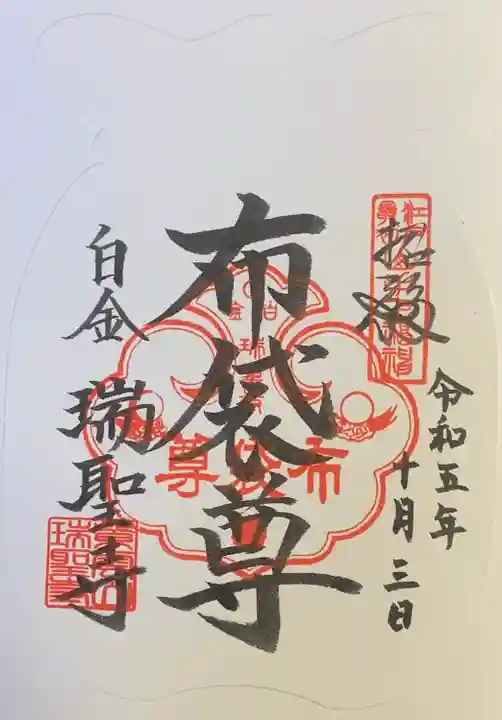 拓殿
令和五年
十月三日
布袋尊
白金
瑞聖寺
布袋尊
白金
瑞聖寺
瑞聖寺